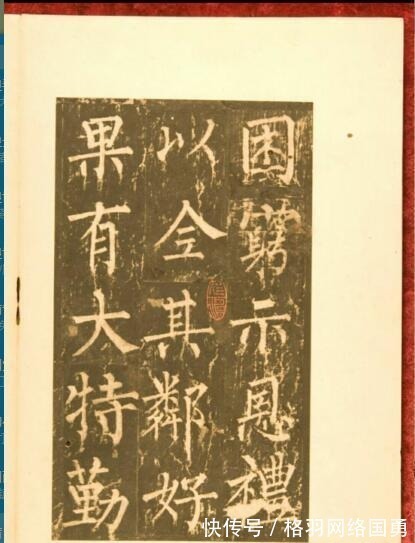 困窮示恩禮
以全其鄰好
果有大特勤
快传号 / 格羽网络国勇